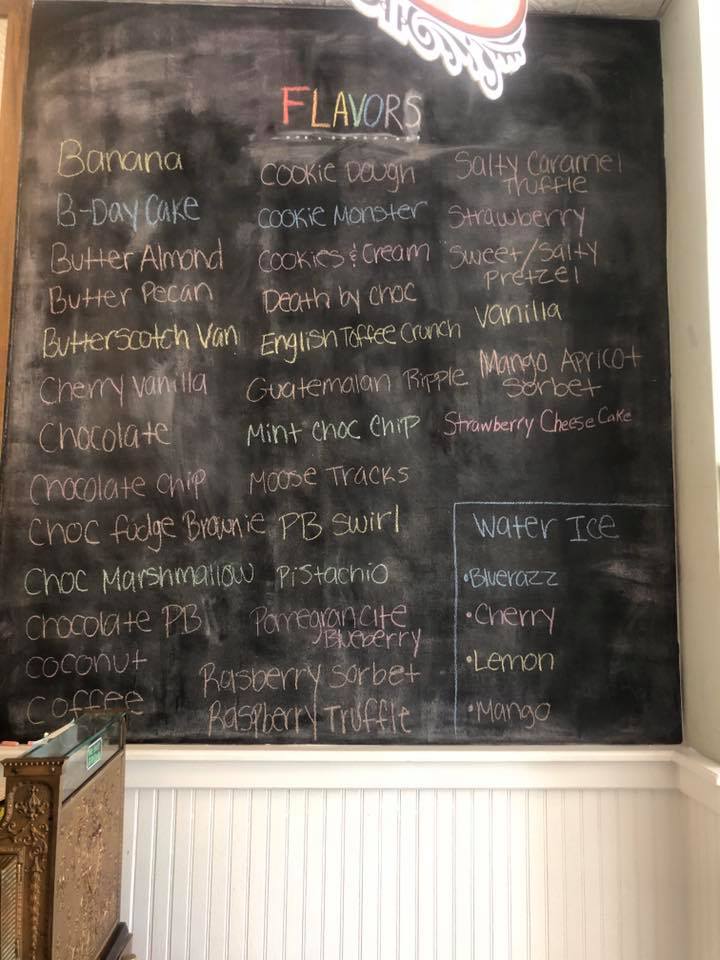 FLAVORS
Banana
B-Day Cake
Butter Almond
Butter Pecan
Butterscotch Van
Cherry Vanilla
Chocolate
Chocolate Chip
Choc fudge Brownie
Choc Marshmallow
Chocolate PB
coconut
Coffee
Cookie Dough
Cookie Monster
Cookies & Cream
Death by choc
English Toffee Crunch
Guatemalan Ripple
Mint choc chip
Moose Tracks
PB swirl
Pistachio
Pomegrancite
Blueberry
Rasberry Sorbet
Raspberry Truffle
Salty Caramel
Truffle
Strawberry
Sweet/Salty
Pretzel
Vanilla
Mango Apricot
Sorbet
Strawberry Cheese Cake
Water Ice
•Bluerazz
•Cherry
•Lemon
•Mango